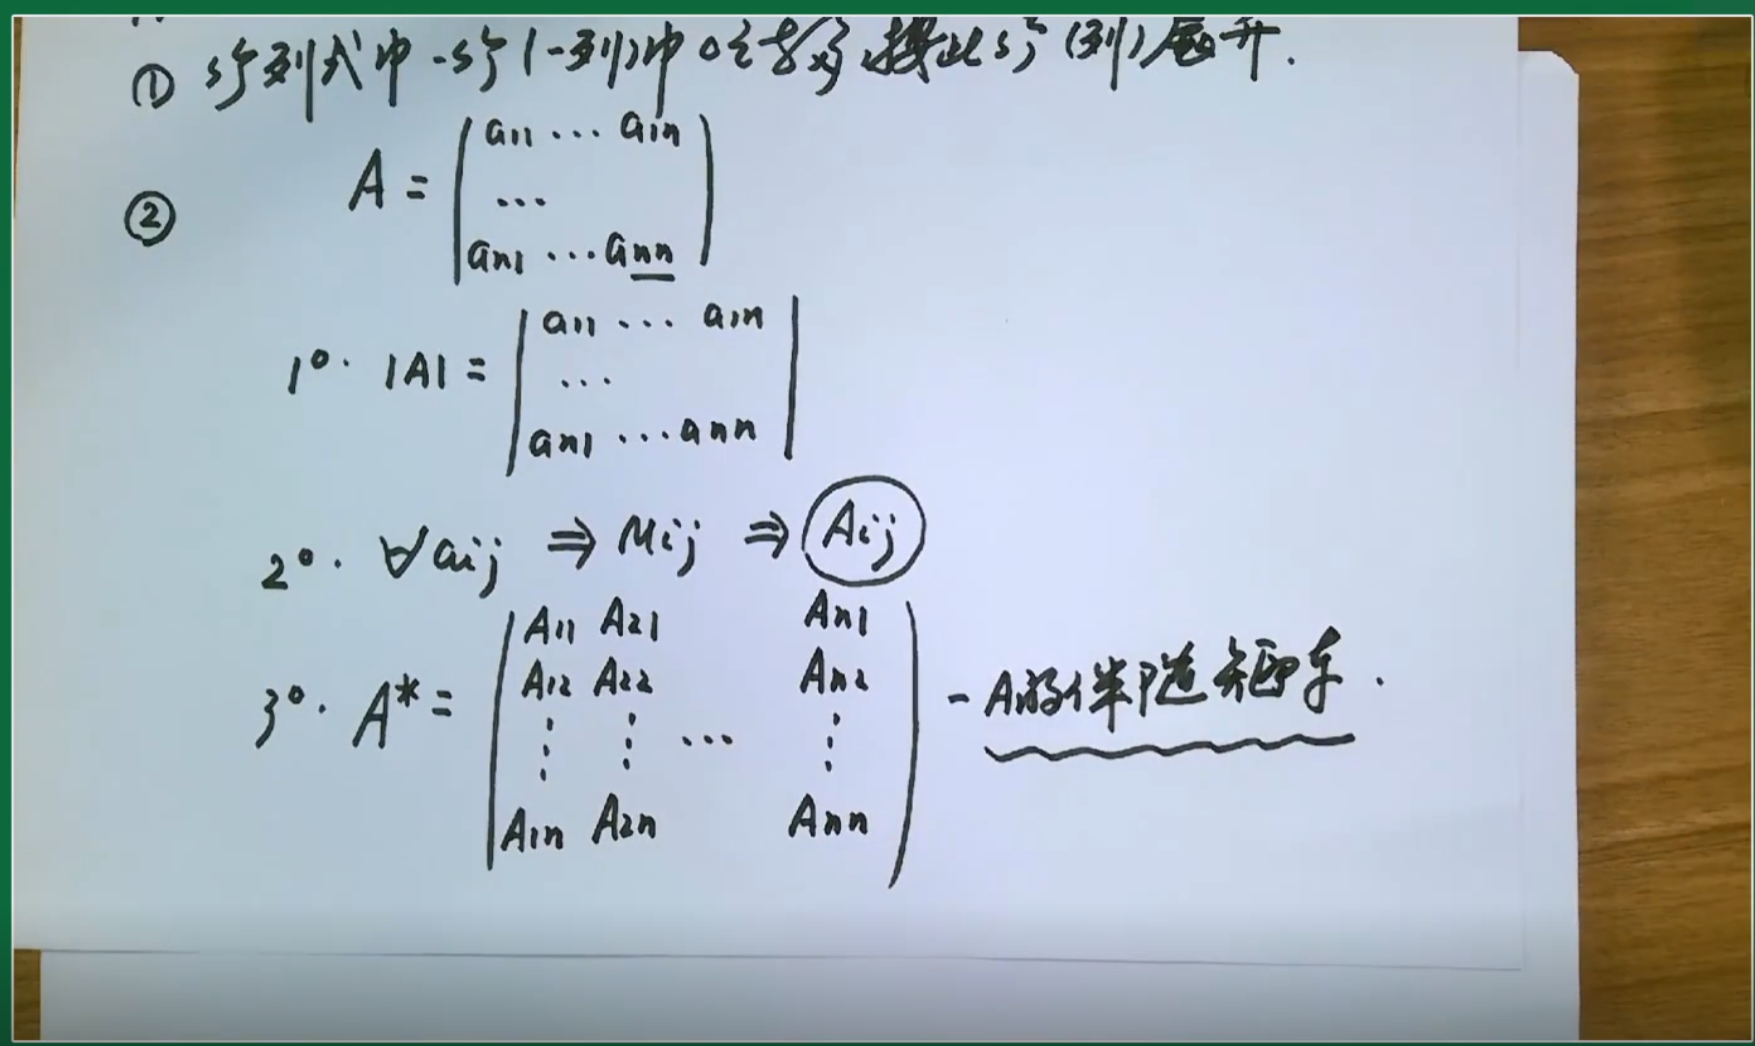 ① 行列式中一行(一列)中0较多,按此行(列)展开.
② A = ( a11 ... a1n
...
an1 ... ann )
1°. |A| = | a11 ... a1n
...
an1 ... ann |
2°. ∀aij ⇒ Mij ⇒ Aij
3°. A* = ( A11 A21 An1
A12 A22 An2
⋮ ⋮ ... ⋮
A1n A2n Ann ) - A的伴随矩阵.